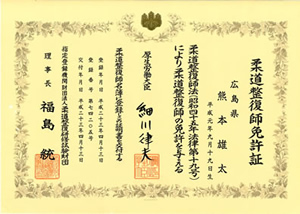 柔道整復師免許証
広島県
熊本雄太
平成元年九月十九日生
柔道整復師法(昭和四十五年法律第十九号)
により柔道整復師の免許を与える
厚生労働大臣
細川律夫
柔道整復師名簿に登録したので此の証書を交付する
登録年月日 平成二十三年四月十三日
登録番号 第七四二〇五号
交付年月日 平成二十三年四月十三日
指定登録機関財団法人柔道整復研修試験財団
理事長 福島統